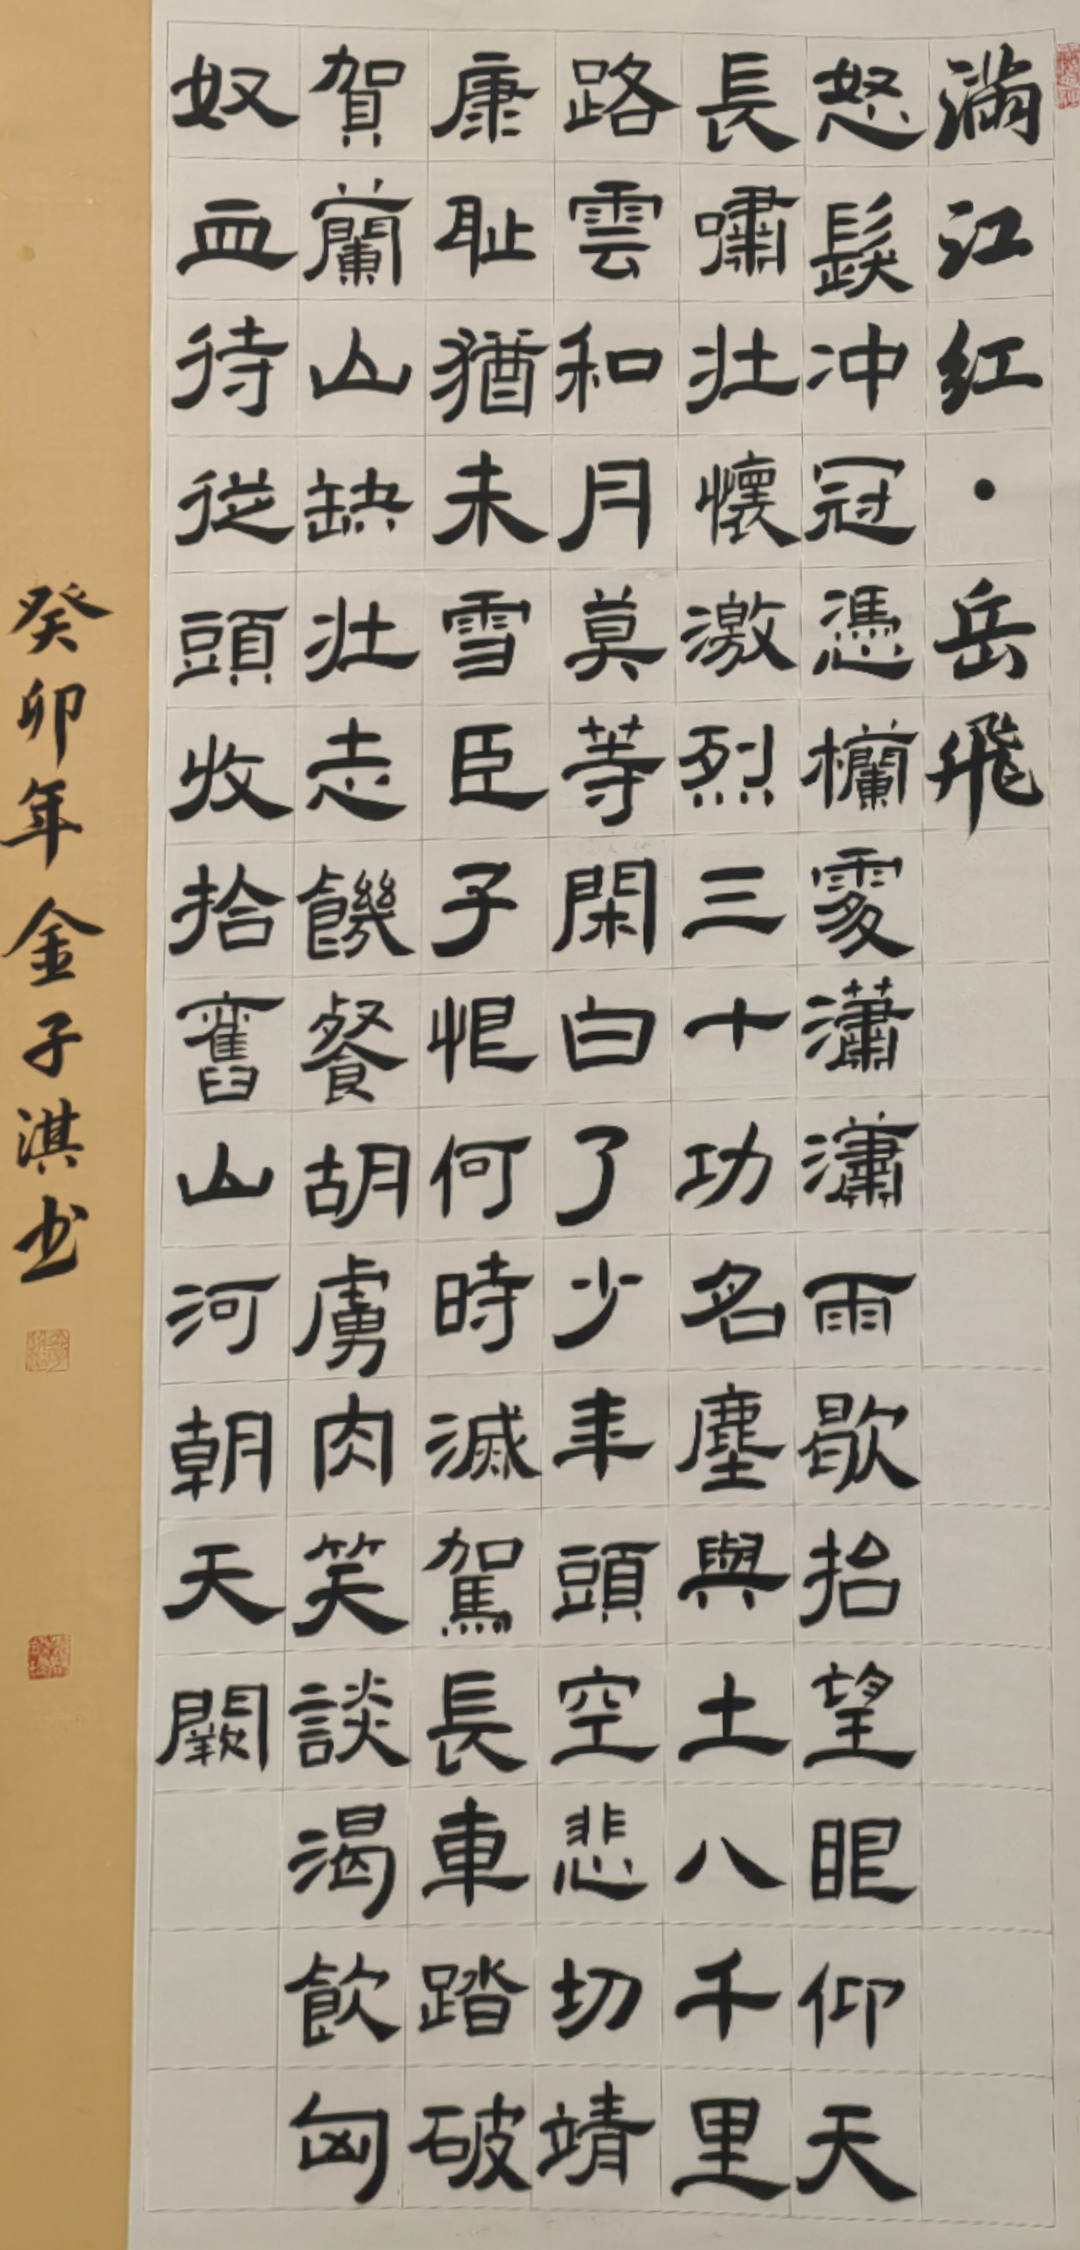 满江红·岳飛
怒髮冲冠憑欄處瀟瀟雨歇抬望眼仰天
長嘯壯懷激烈三十功名塵與土八千里
路雲和月莫等閑白了少年頭空悲切靖
康耻猶未雪臣子恨何時滅駕長車踏破
賀蘭山缺壯志饑餐胡虜肉笑談渴飲匈
奴血待從頭收拾舊山河朝天闕
癸卯年金子淇书